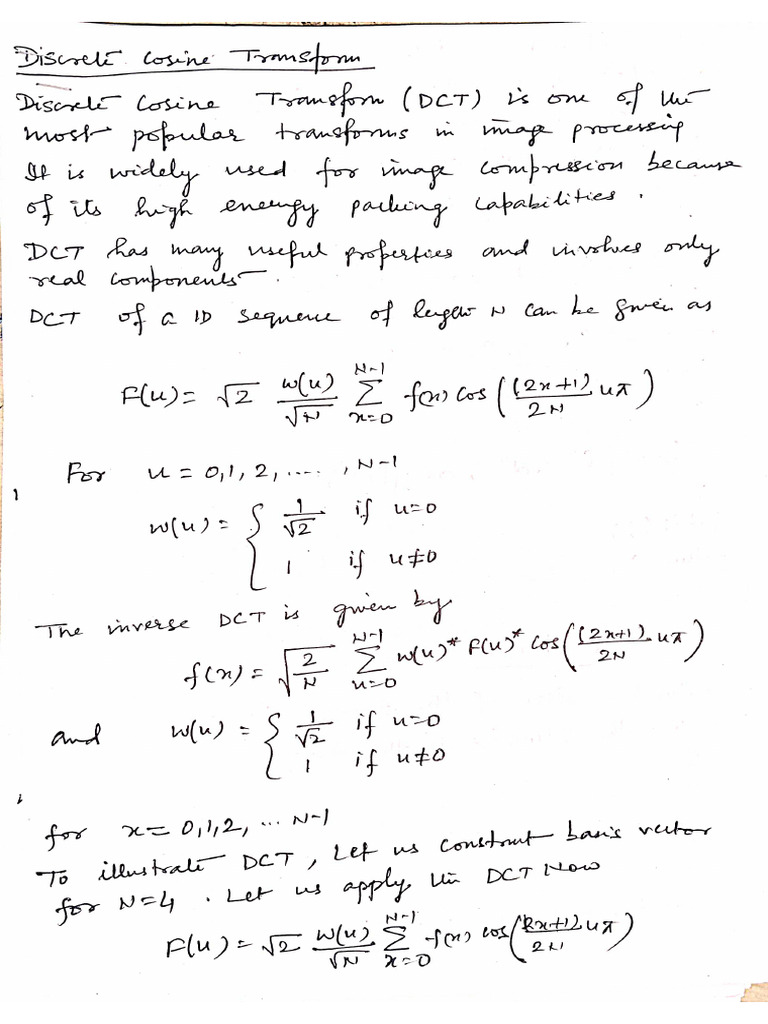 Discrete Cosine Transform
Discrete Cosine Transform (DCT) is one of the
most popular transforms in image processing
It is widely used for image compression because
of its high energy packing capabilities.
DCT has many useful properties and involves only
real components.
DCT of a 1D sequence of length N can be given as
F(u) = √2 w(u)/√N Σ_{x=0}^{N-1} f(x) cos((2x+1)/2N uπ)
For u = 0,1,2, ...., N-1
w(u) = { 1/√2 if u=0
1 if u≠0
The inverse DCT is given by
f(x) = √(2/N) Σ_{u=0}^{N-1} w(u)* F(u)* cos((2x+1)/2N uπ)
and w(u) = { 1/√2 if u=0
1 if u≠0
for x = 0,1,2, ... N-1
To illustrate DCT, Let us construct basis vector
for N=4. Let us apply the DCT Now
F(u) = √2 w(u)/√N Σ_{x=0}^{N-1} f(x) cos((2x+1)/2N uπ)